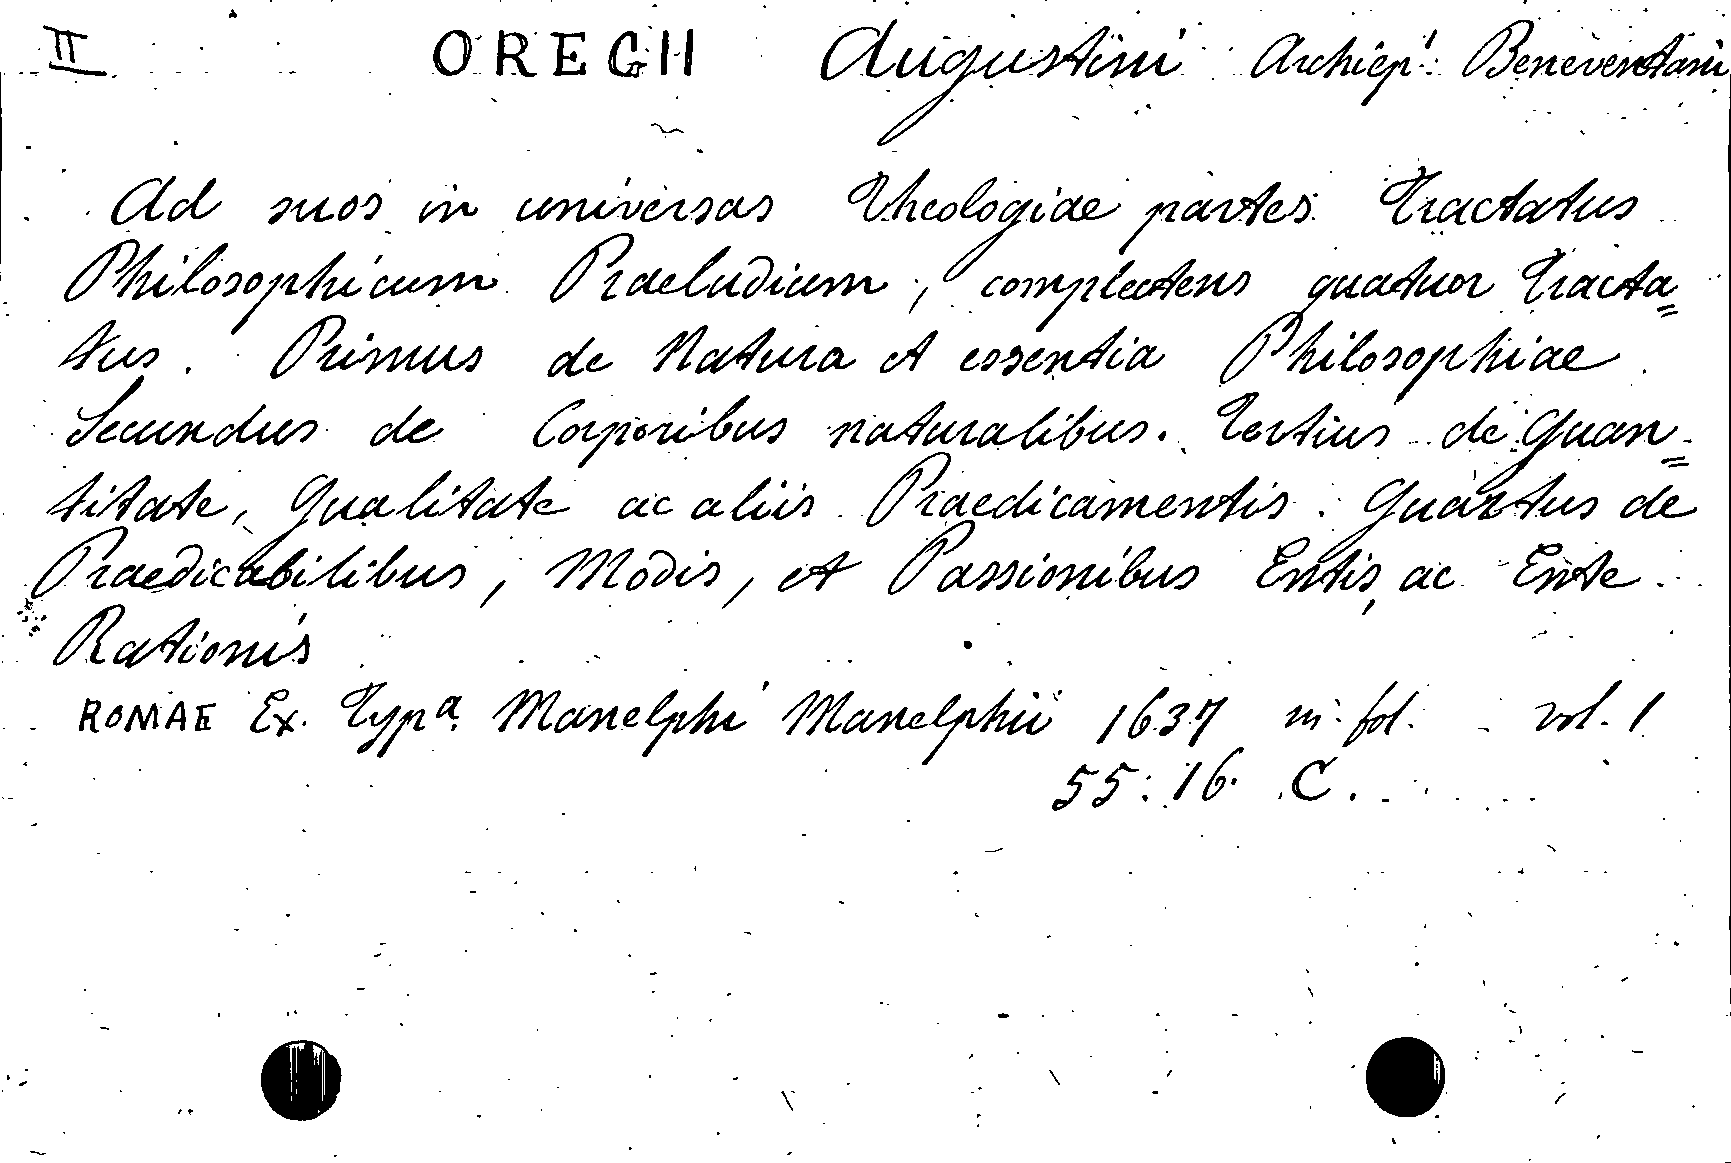 II OREGII Augustini Archiep.i Beneventani
Ad suos in universas Theologiae partes Tractatus
Philosophicum Praeludium, complectens quatuor Tracta=
tus. Primus de Natura et essentia Philosophiae.
Secundus de Corporibus naturalibus. Tertius de Quan=
titate, Qualitate ac aliis Praedicamentis. Quartus de
Praedicabilibus, Modis, et Passionibus Entis, ac Ente
Rationis
ROMAE Ex. Typ.a Manelphi Manelphii 1637 in fol. vol. 1
55:16. C.